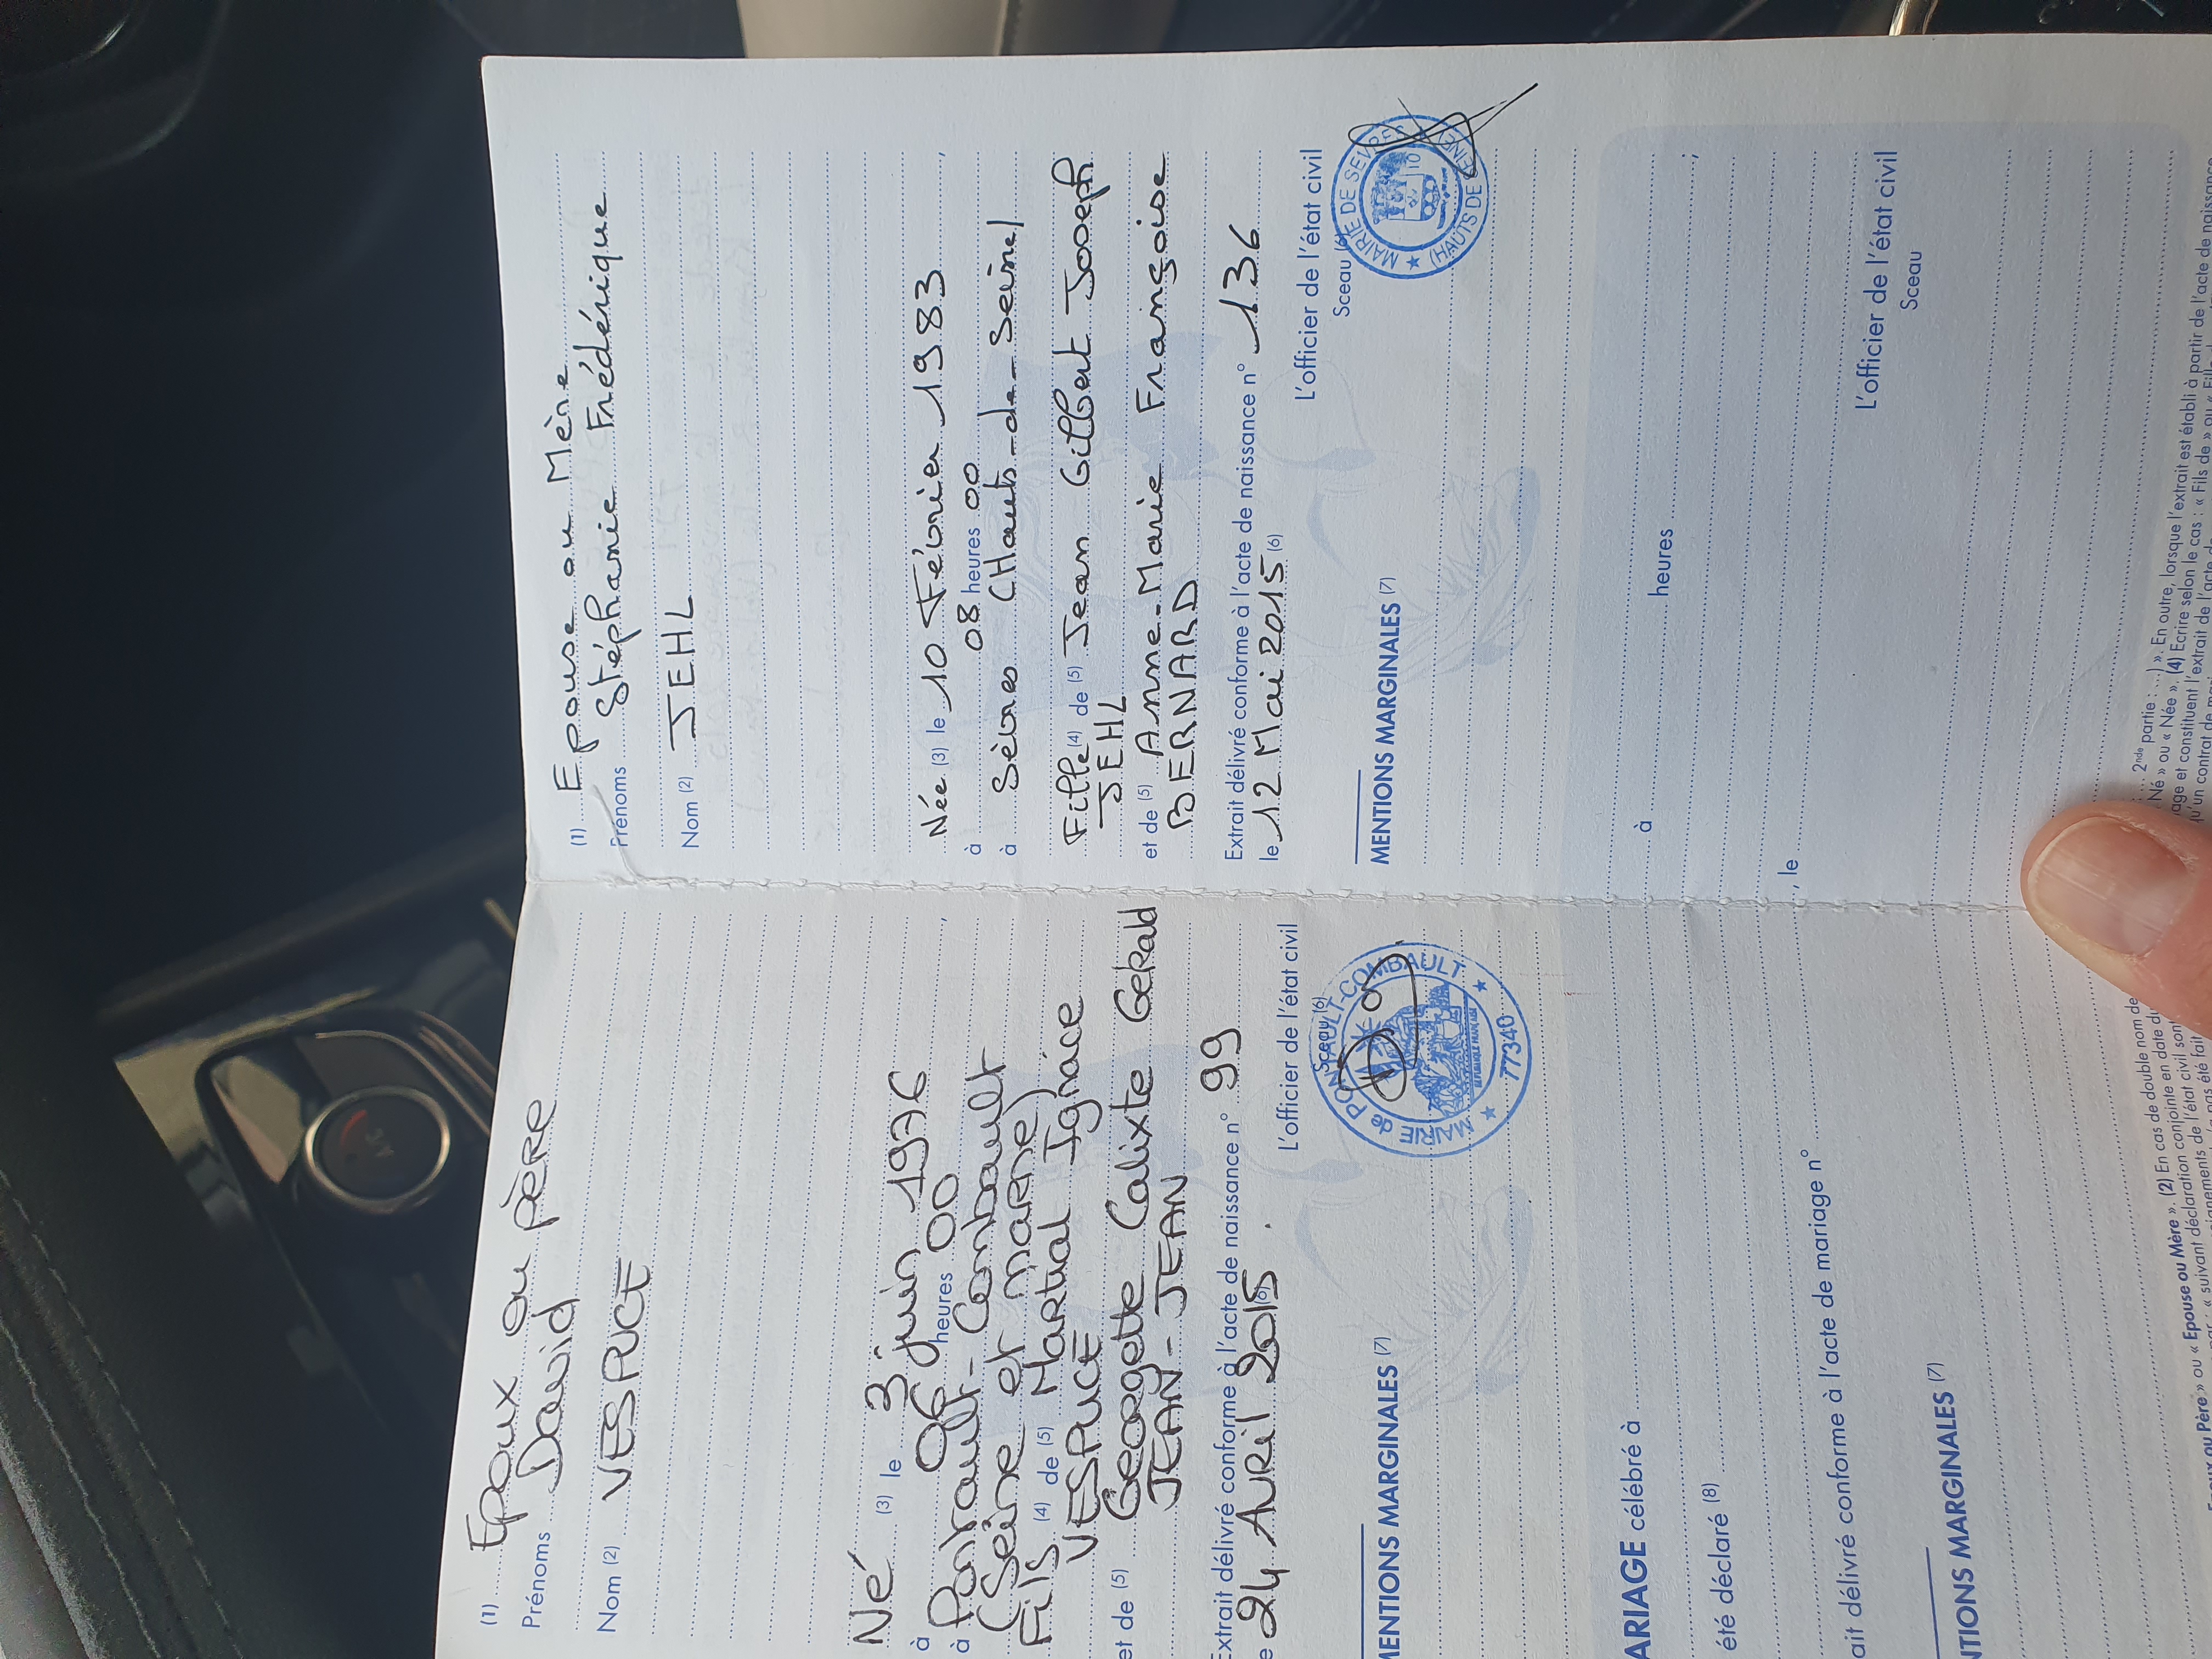 (1) Epoux ou père
Prénoms David
Nom (2) VESPUCE
Né (3) le 3 juin 1976
à 06 heures 00,
à Pontault-Combault
(Seine et marne)
Fils (4) de (5) Martial Ignace
VESPUCE
et de (5) Georgette Calixte Gérald
JEAN-JEAN
Extrait délivré conforme à l'acte de naissance n° 99
e 24 Avril 2015 (6).
L'officier de l'état civil
Sceau (6)
MAIRIE de PONTAULT-COMBAULT
RÉPUBLIQUE FRANÇAISE
★ 77340 ★
MENTIONS MARGINALES (7)
(1) Epouse ou Mère
Prénoms Stéphanie Frédérique
Nom (2) JEHL
Née (3) le 10 Février 1983,
à 08 heures 00
à Sèvres (Hauts-de-Seine)
Fille (4) de (5) Jean Gilbert Joseph
JEHL
et de (5) Anne-Marie Françoise
BERNARD
Extrait délivré conforme à l'acte de naissance n° 136
le 12 Mai 2015 (6)
L'officier de l'état civil
Sceau (6)
★ MAIRIE DE SEVRES
(HAUTS DE SEINE)
10
MENTIONS MARGINALES (7)
ARIAGE célébré à
à heures ;
été déclaré (8)
, le
ait délivré conforme à l'acte de mariage n°
L'officier de l'état civil
Sceau
NTIONS MARGINALES (7)
2nde partie : ..) ». En outre, lorsque l'extrait est établi à partir de l'acte de naissance
Epoux ou Père » ou « Epouse ou Mère ». (2) En cas de double nom de
Né » ou « Née ». (4) Ecrire selon le cas : « Fils de » ou « Fille
suivant déclaration conjointe en date du
age et constituent l'extrait de l'acte de